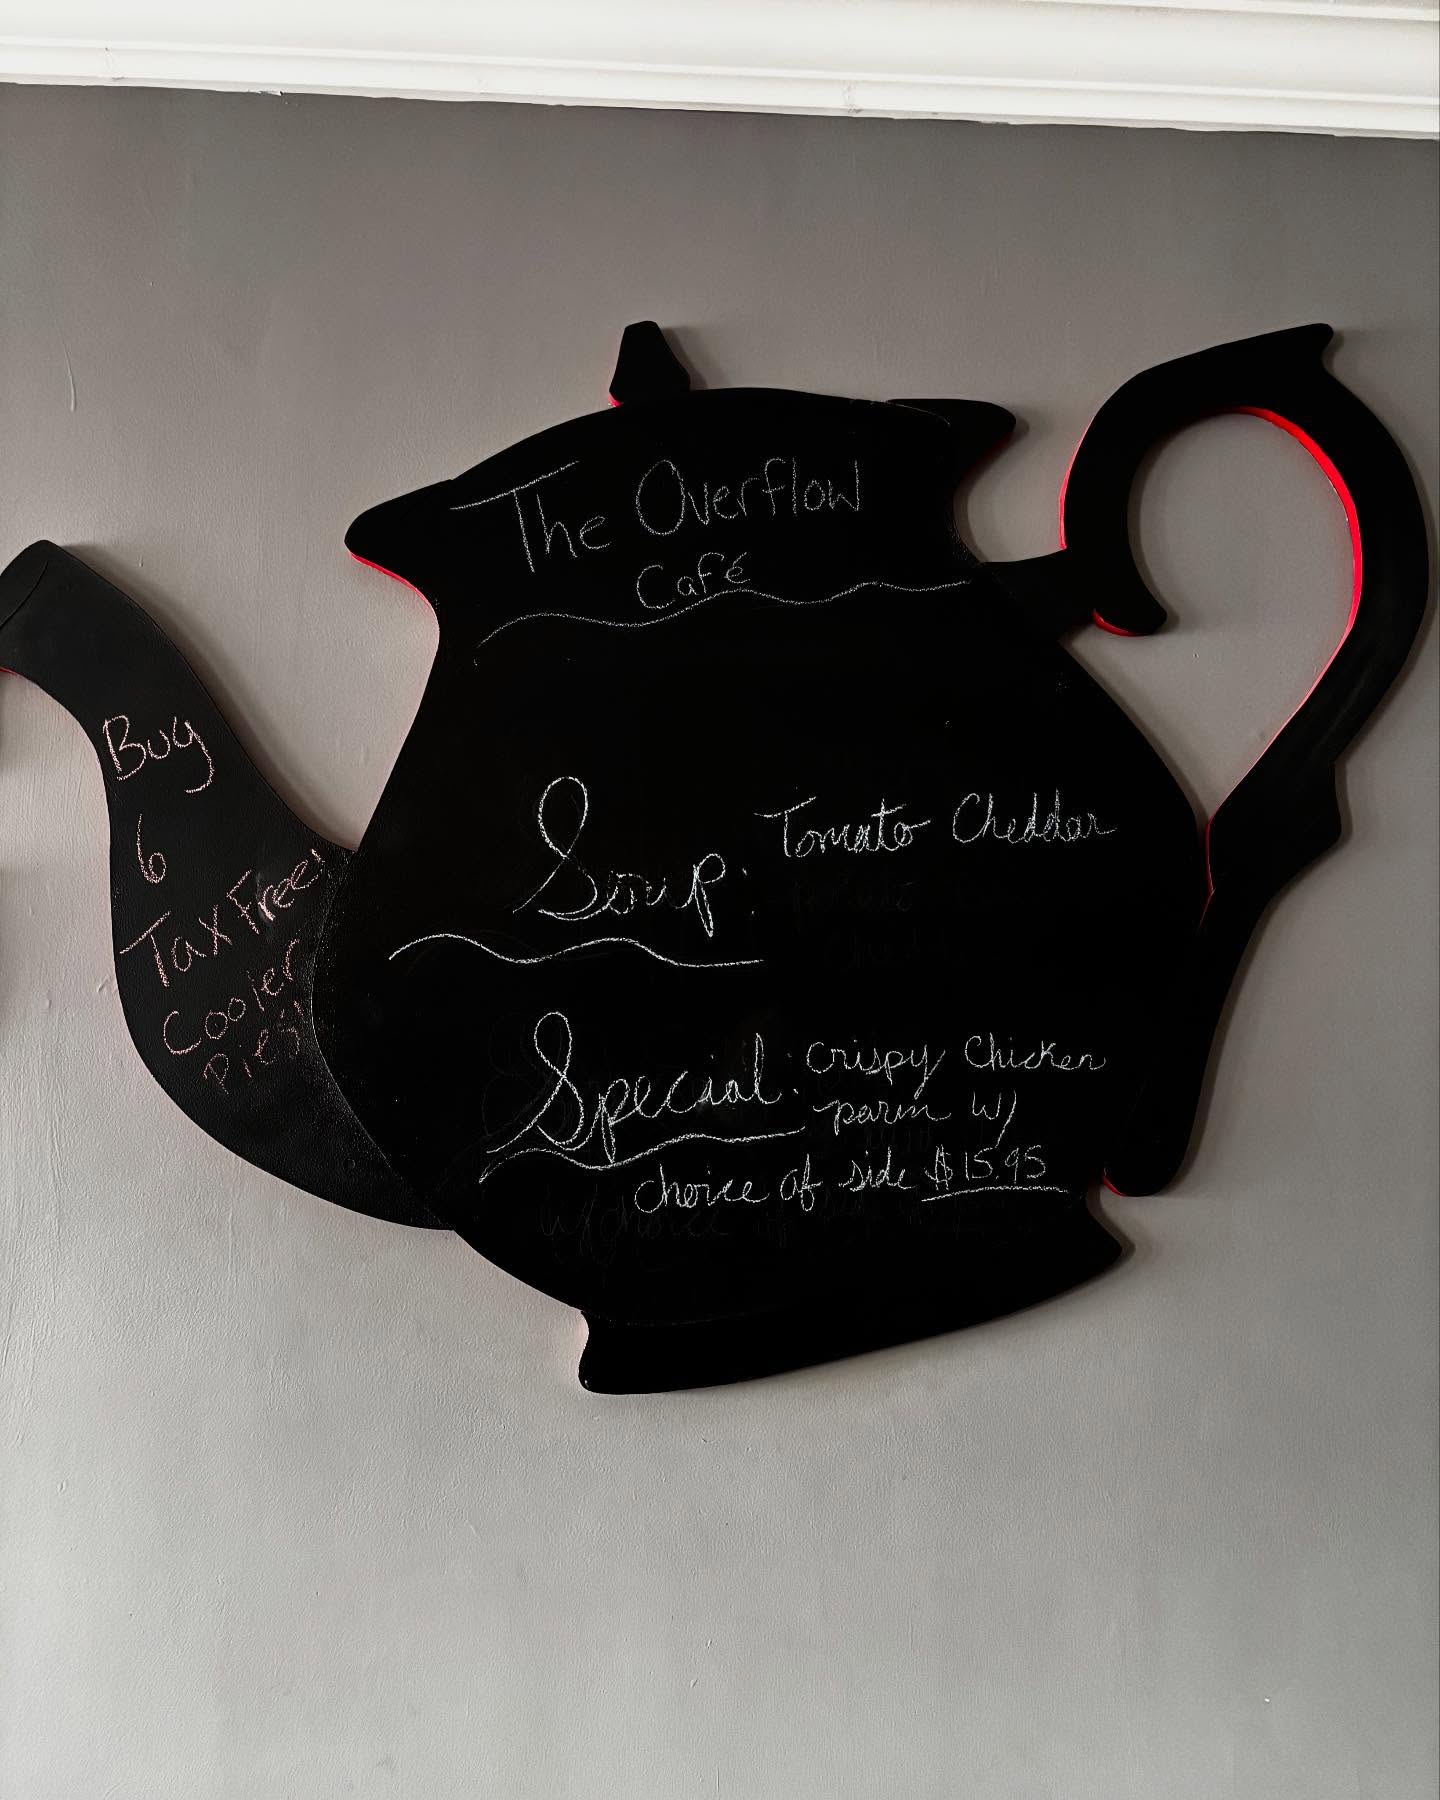 The Overflow
Café
Soup: Tomato Cheddar
Special: Crispy Chicken
parm w/
choice of side $15.95
Buy
6
Tax Free!
Cooler
Pies!